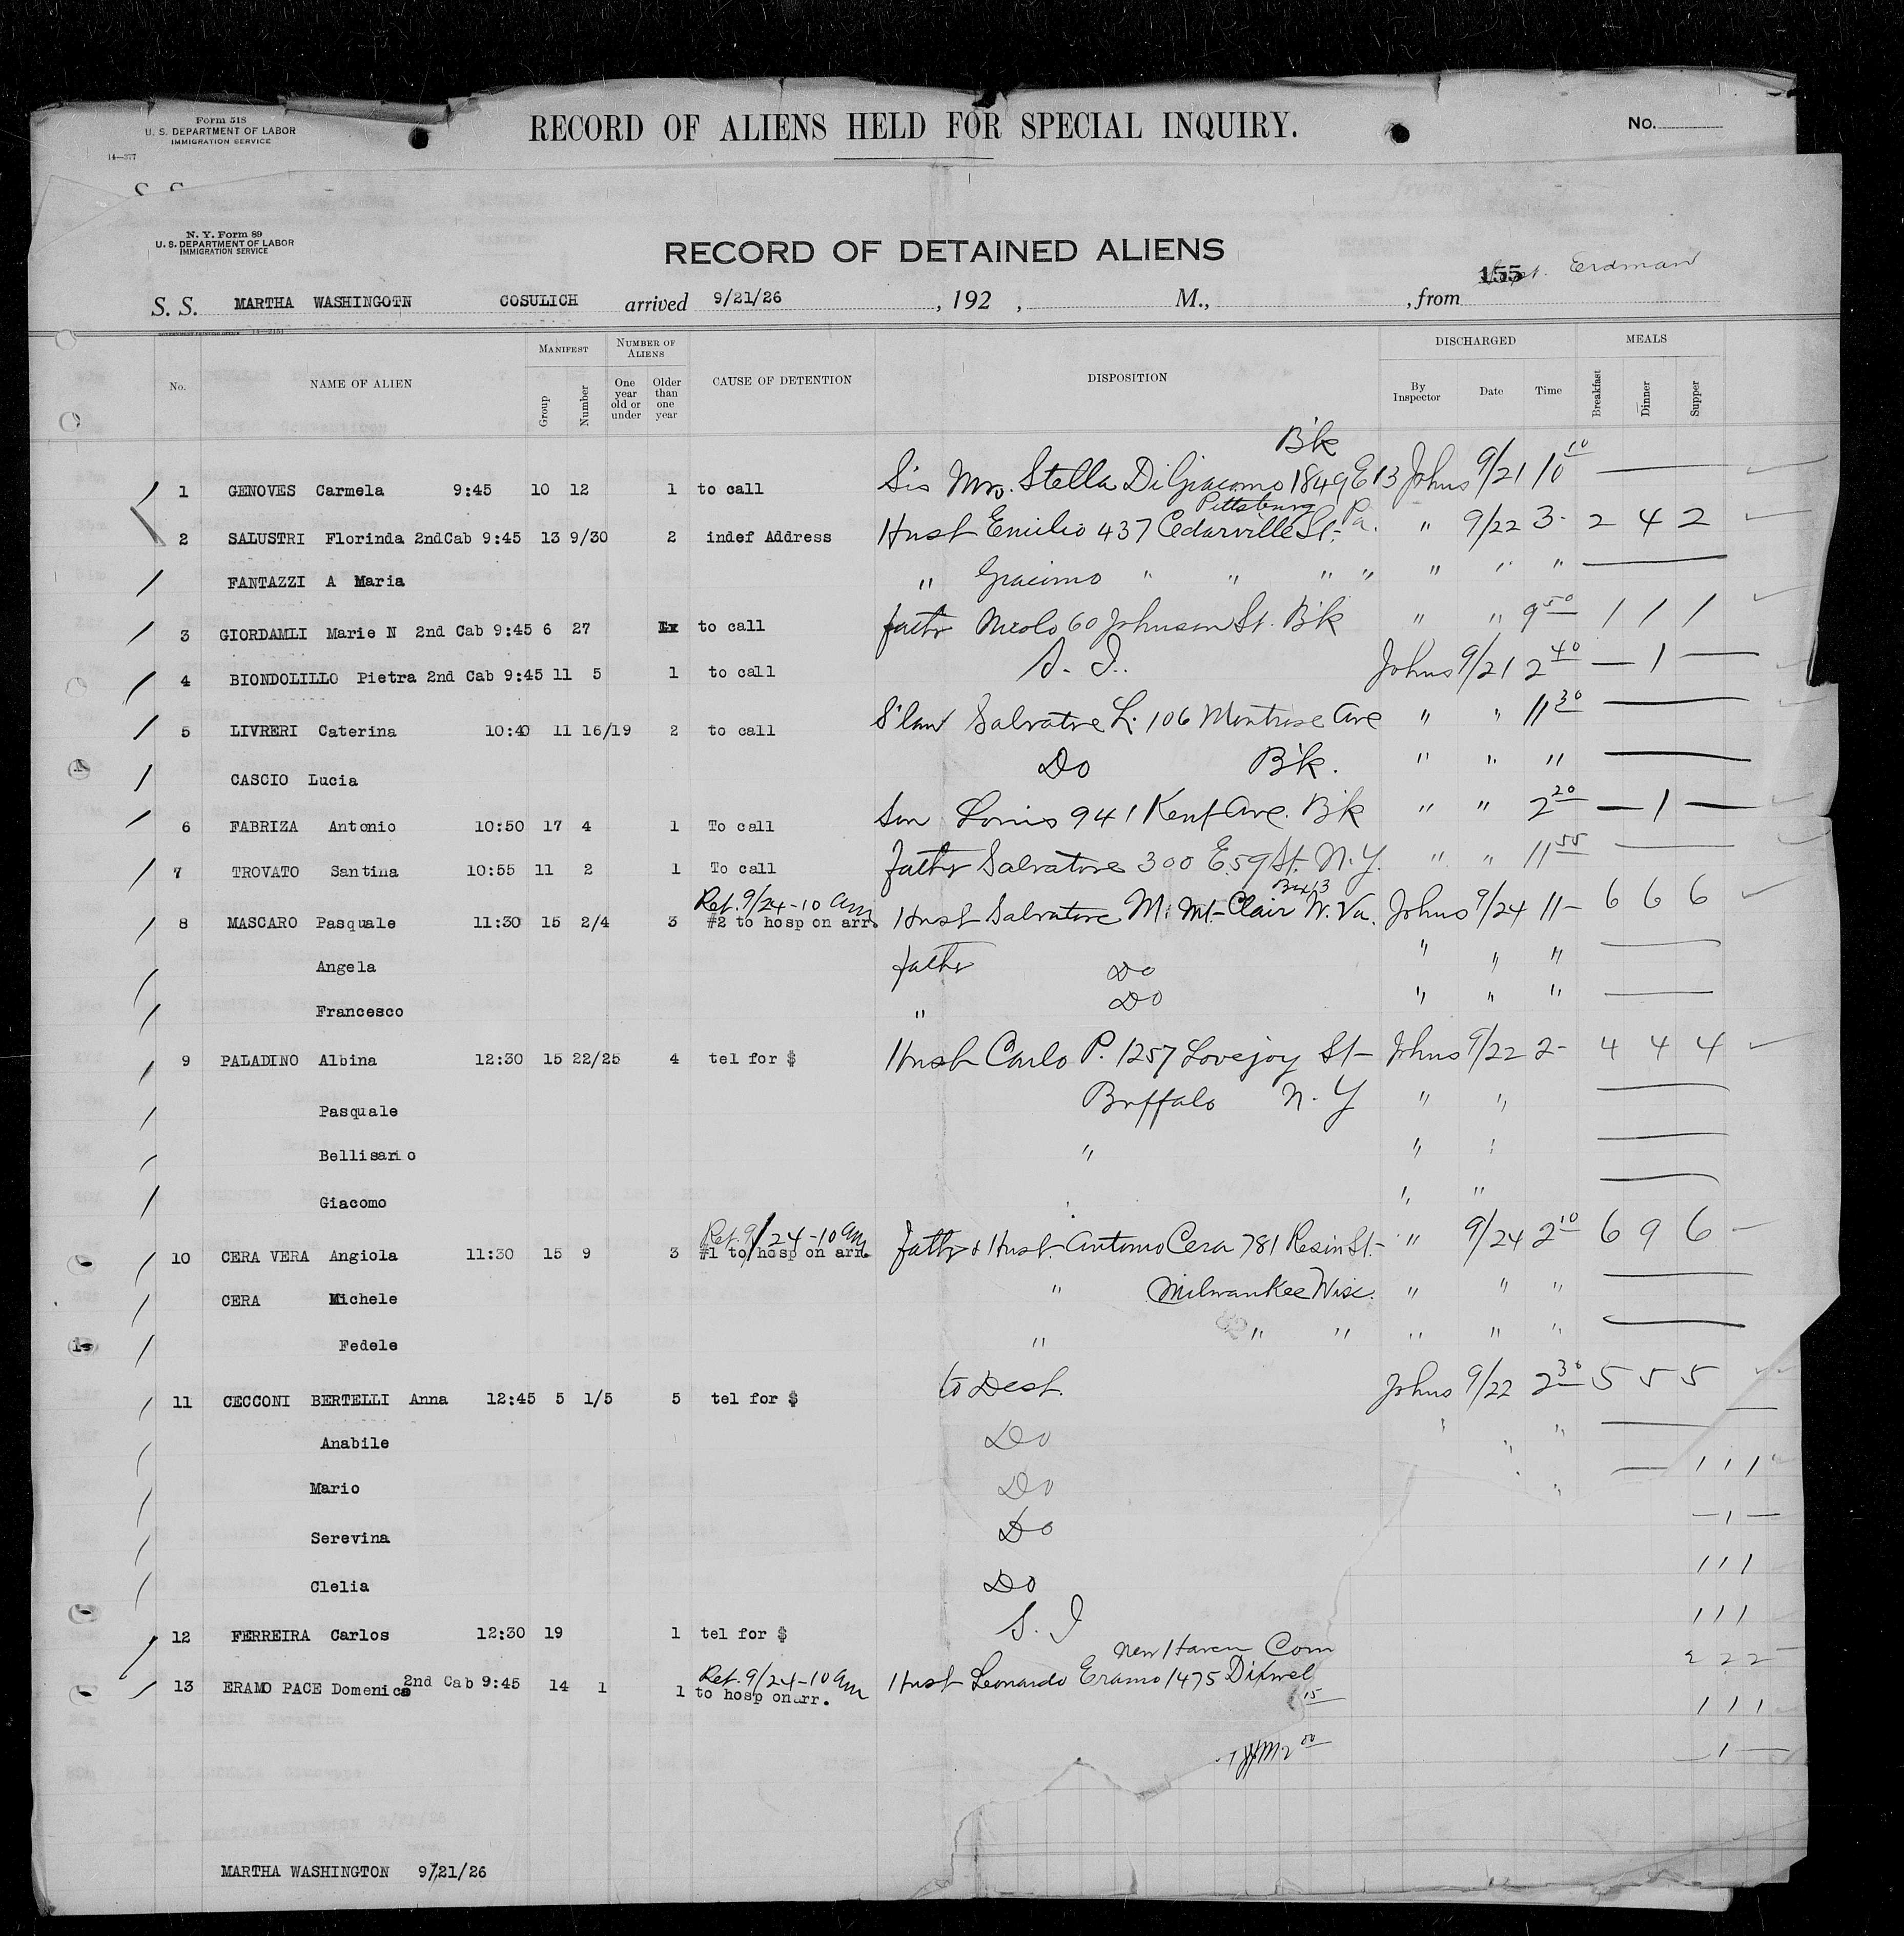 Form 518
U. S. DEPARTMENT OF LABOR
IMMIGRATION SERVICE
14—377
RECORD OF ALIENS HELD FOR SPECIAL INQUIRY.
No.
S. S.
N. Y. Form 89
U. S. DEPARTMENT OF LABOR
IMMIGRATION SERVICE
RECORD OF DETAINED ALIENS
155 Erdman
S. S. MARTHA WASHINGOTN COSULICH arrived 9/21/26 , 192 , M., , from
GOVERNMENT PRINTING OFFICE 14—2151
No. NAME OF ALIEN MANIFEST Group Number NUMBER OF ALIENS One year old or under Older than one year CAUSE OF DETENTION DISPOSITION DISCHARGED By Inspector Date Time MEALS Breakfast Dinner Supper
Bk
1 GENOVES Carmela 9:45 10 12 1 to call Sis Mrs. Stella DiGiacomo 1849 E 13 Johns 9/21 10 10 —
Pittsburg
2 SALUSTRI Florinda 2ndCab 9:45 13 9/30 2 indef Address Husb Emilio 437 Cedarville St- Pa. " 9/22 3- 2 4 2
FANTAZZI A Maria " Giacimo " " " " " " " —
3 GIORDAMLI Marie N 2nd Cab 9:45 6 27 to call father Nicolo 60 Johnson St. Bk " " 9 50 1 1 1
4 BIONDOLILLO Pietra 2nd Cab 9:45 11 5 1 to call S. I. Johns 9/21 2 40 — 1 —
5 LIVRERI Caterina 10:40 11 16/19 2 to call S'law Salvatore L. 106 Montrose Ave " " 11 30 —
CASCIO Lucia Do Bk. " " " —
6 FABRIZA Antonio 10:50 17 4 1 To call Son Louis 941 Kent Ave. Bk " " 2 20 — 1 —
7 TROVATO Santina 10:55 11 2 1 To call father Salvatore 300 E.59 St. N.Y. " " 11 55 —
Ret. 9/24-10 am Box 13
8 MASCARO Pasquale 11:30 15 2/4 3 #2 to hosp on arr. Husb Salvatore M. Mt-Clair W. Va. Johns 9/24 11- 6 6 6
Angela father Do " " " —
Francesco " Do " " " —
9 PALADINO Albina 12:30 15 22/25 4 tel for $ Husb Carlo P. 1257 Lovejoy St- Johns 9/22 2- 4 4 4
Pasquale Buffalo N. Y " " —
Bellisario " " " —
Giacomo " " —
Ret. 9/24-10 am
10 CERA VERA Angiola 11:30 15 9 3 #1 to hosp on arr. father & Husb. Antonio Cera 781 St- " 9/24 2 10 6 9 6
CERA Michele " Milwaukee Wisc. " " " —
Fedele " " " " " " —
11 CECCONI BERTELLI Anna 12:45 5 1/5 5 tel for $ to Dest. Johns 9/22 2 30 5 5 5
Anabile Do " " " —
Mario Do " " — 1 1 1
Serevina Do — 1 —
Clelia Do 1 1 1
12 FERREIRA Carlos 12:30 19 1 tel for $ S. I 1 1 1
New Haven Conn 2 2 2
Ret. 9/24-10 am
13 ERAMO PACE Domenica 2nd Cab 9:45 14 1 1 to hosp on arr. Husb Leonardo Eramo 1475 Dixwel
15 1 1 1
00 — 1 —
MARTHA WASHINGTON 9/21/26